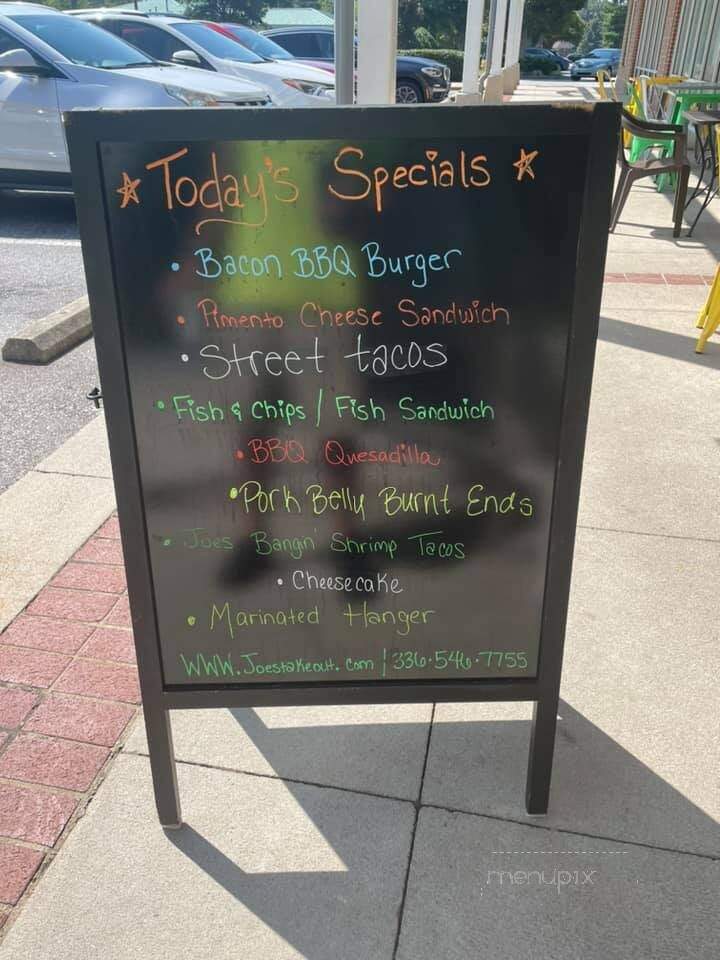 ☆ Today's Specials ☆
• Bacon BBQ Burger
• Pimento Cheese Sandwich
• Street tacos
• Fish & Chips / Fish Sandwich
• BBQ Quesadilla
• Pork Belly Burnt Ends
• Joes Bangn' Shrimp Tacos
• Cheesecake
• Marinated Hanger
WWW.Joestakeout.com | 336.546.7755
menupix